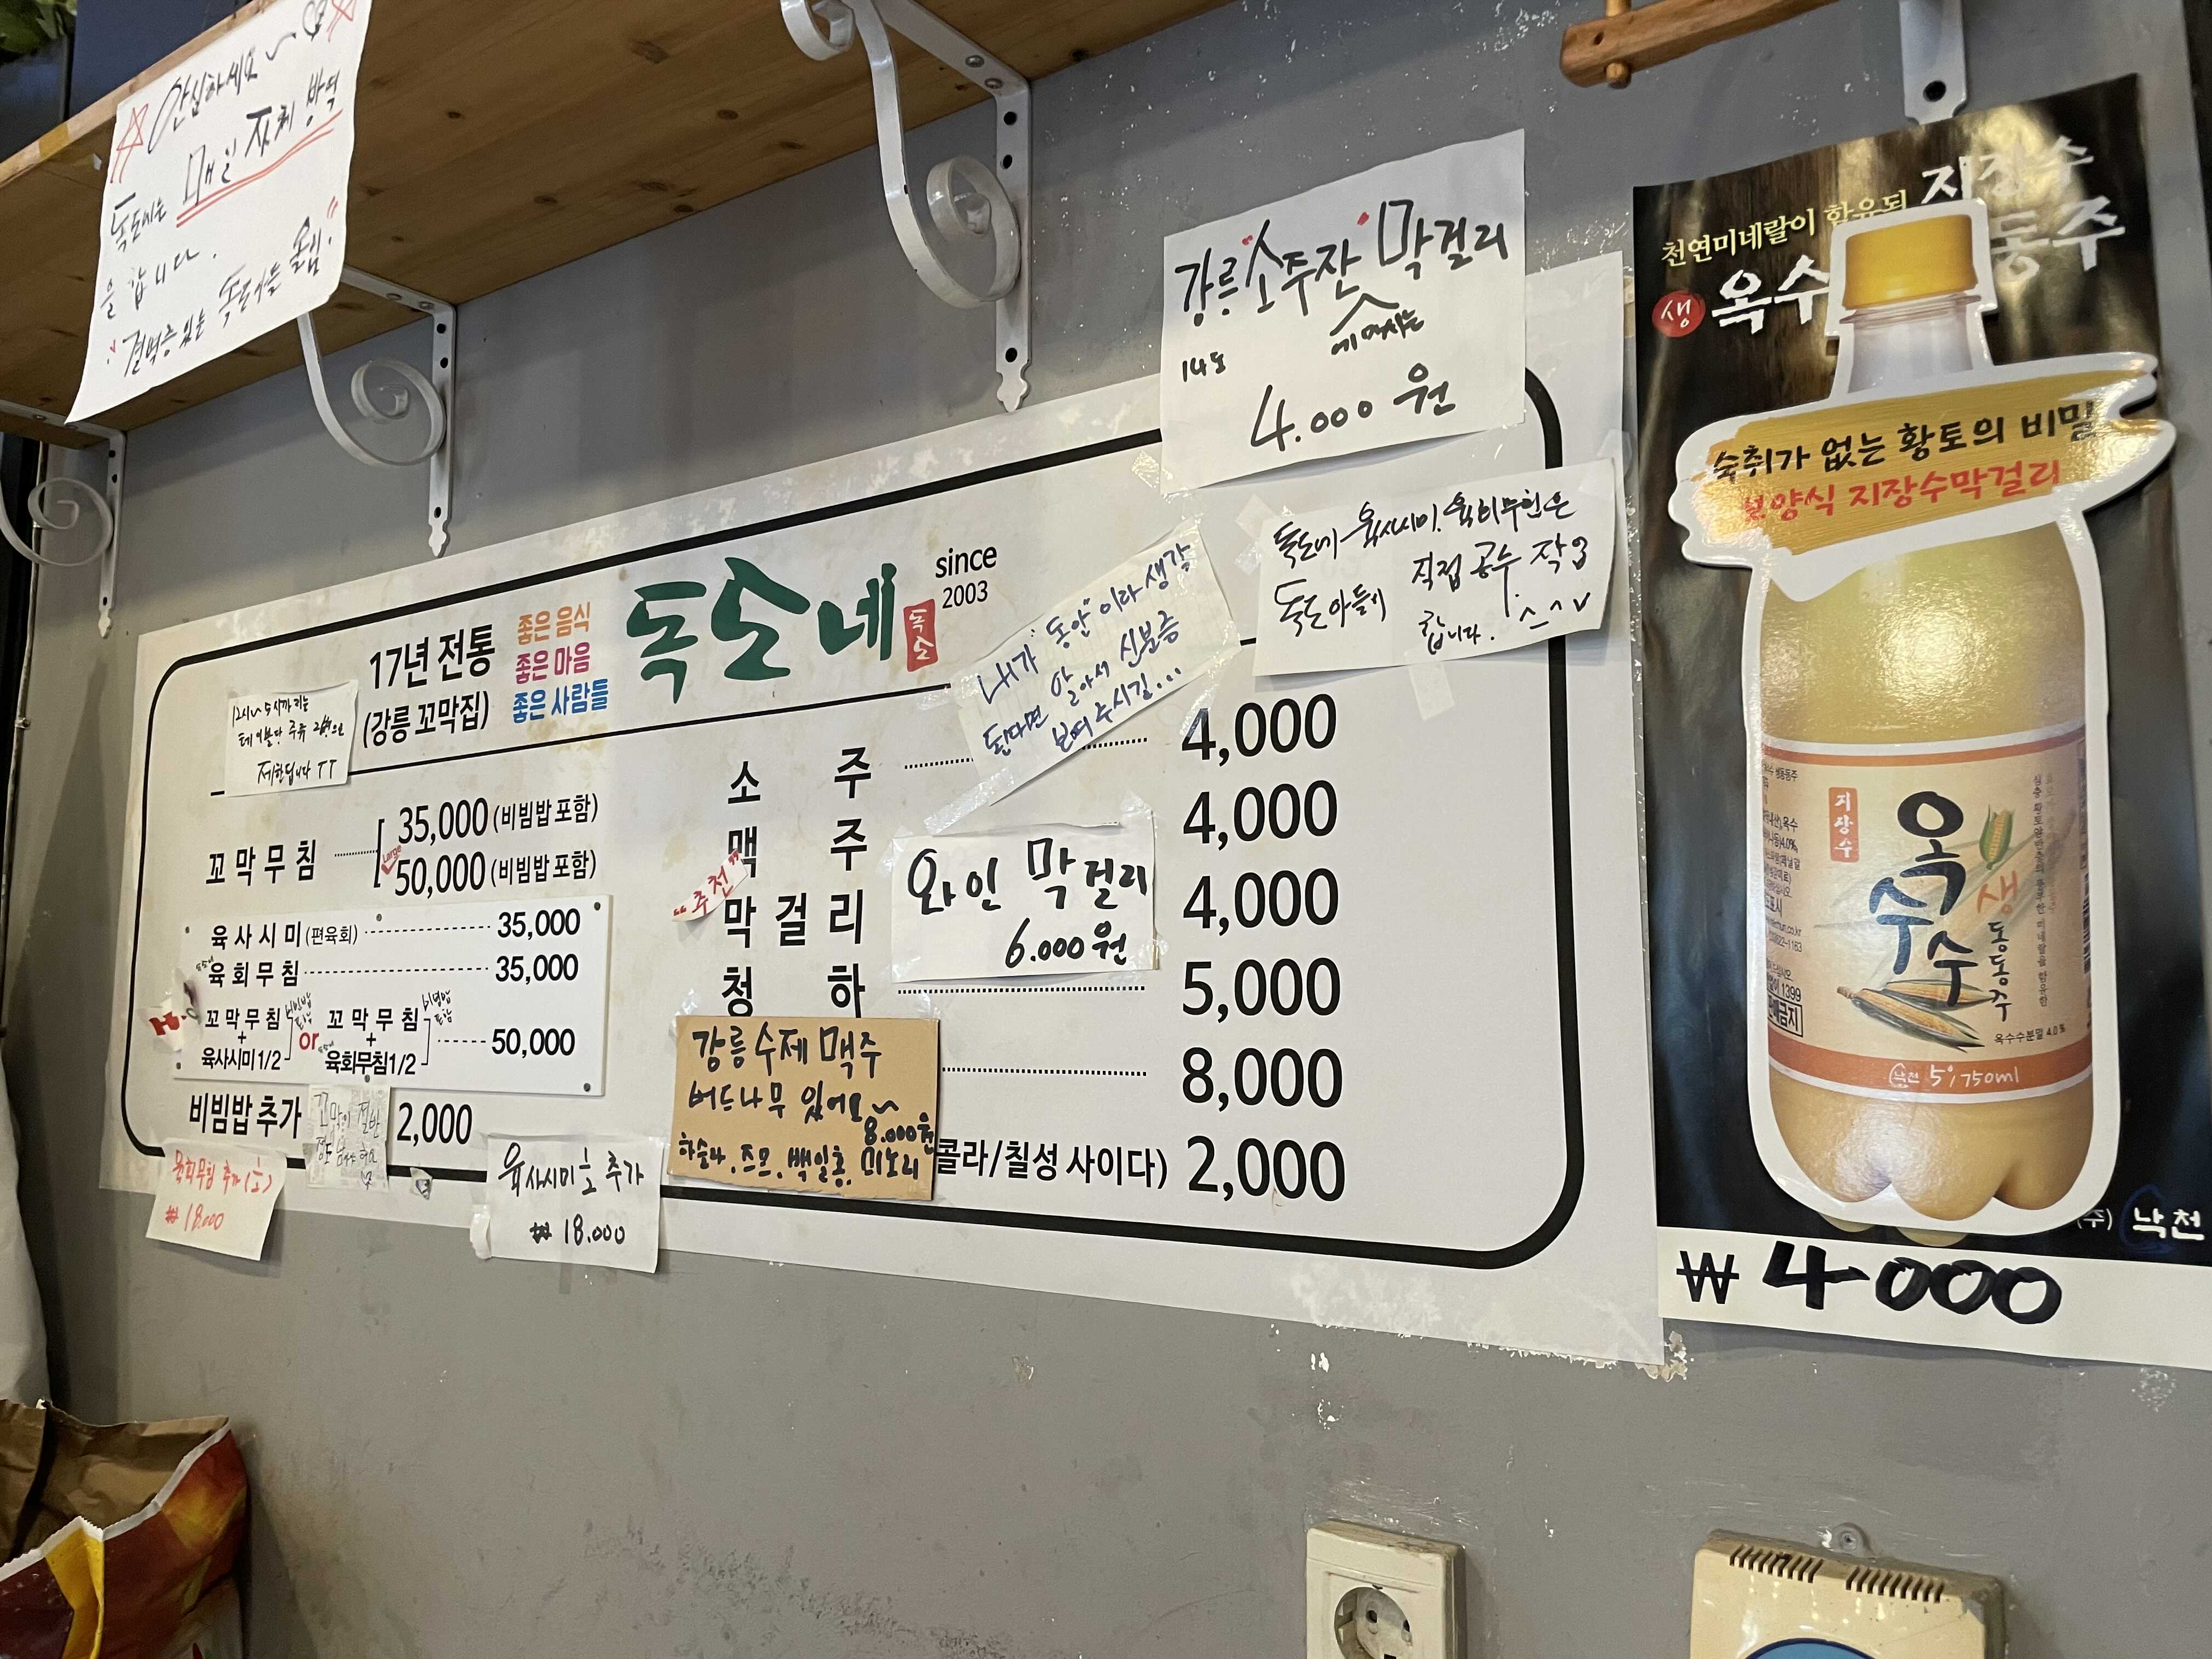 안심하세요~
독도네는 매일 자체 방역
을 합니다.
"결벽증 있는 독도아들 올림."
강릉 "소주잔" 막걸리
에 마시는
14도
4.000원
독도네 육사시미. 육회무침은
독도아들이 직접 공수 작업
합니다. ^^V
내가 "동안"이라 생각
된다면 알아서 신분증
보여주시길...
17년 전통
(강릉 꼬막집)
좋은 음식
좋은 마음
좋은 사람들
독도네
독도
since
2003
12시~5시까지는
테이블당 주류 2병으로
제한됩니다 TT
꼬막무침
35,000 (비빔밥 포함)
Large
50,000 (비빔밥 포함)
육사시미 (편육회) 35,000
육회무침 35,000
꼬막무침
+
육사시미1/2
비빔밥
포함
or
꼬막무침
+
육회무침1/2
비빔밥
포함
50,000
비빔밥 추가
2,000
육회무침 추가 (1/2)
₩ 18.000
육사시미 1/2 추가
₩ 18.000
소주 4,000
맥주 4,000
"추천"
막걸리 4,000
와인 막걸리
6.000원
청하 5,000
8,000
강릉 수제 맥주
버드나무 있어요~
8.000원
하슬라. 즈므. 백일홍. 미노리
콜라/칠성 사이다) 2,000
천연미네랄이 함유된 지장수
생 옥수 동주
숙취가 없는 황토의 비밀
보양식 지장수막걸리
지장수
옥수수
생
동동주
옥수수분말 4.0%
낙천 5% 750ml
(주) 낙천
₩ 4.000